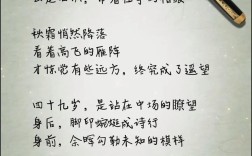 秋霜悄然降落
看着高飞的雁阵
才惊觉有些远方，终究成了遥望
四十九岁，是站在中场的瞭望
身后，脚印蜿蜒成诗行
身前，余晖勾勒未知的模样